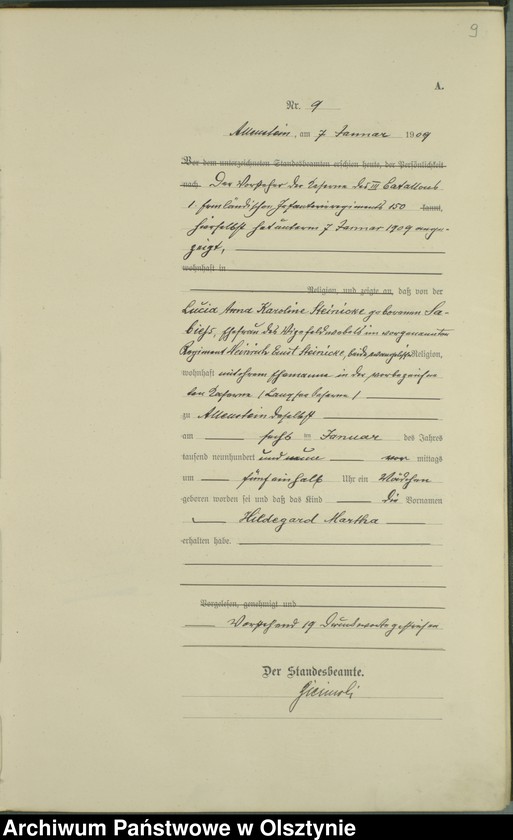 9
A.
Nr. 9
Allenstein, am 7 Januar 1909
Vor dem unterzeichneten Standesbeamten erschien heute, der Persönlichkeit
nach Der Vorsteher der Kaserne des III Bataillons
1. Ermländischen Infanterieregiments 150 kannt,
hierselbst hat unterm 7 Januar 1909 ange-
zeigt,
wohnhaft in
Religion, und zeigte an, daß von der
Lucia Anna Karoline Steinicke geborenen Sa-
, Ehefrau des Vizefeldwebels im vorgenannten
Regiment Heinrich Emil Steinicke, beide evangelischer Religion,
wohnhaft mit ihrem Ehemanne in der vorbezeichne
ten Kaserne (Kaserne)
zu Allenstein daselbst
am sechs ten Januar des Jahres
tausend neunhundert und neun vor mittags
um fünfeinhalb Uhr ein Mädchen
geboren worden sei und daß das Kind die Vornamen
Hildegard Martha
erhalten habe.
Vorgelesen, genehmigt und
Vorstehend 19 Druckworte gestrichen
Der Standesbeamte.
Archiwum Państwowe w Olsztynie